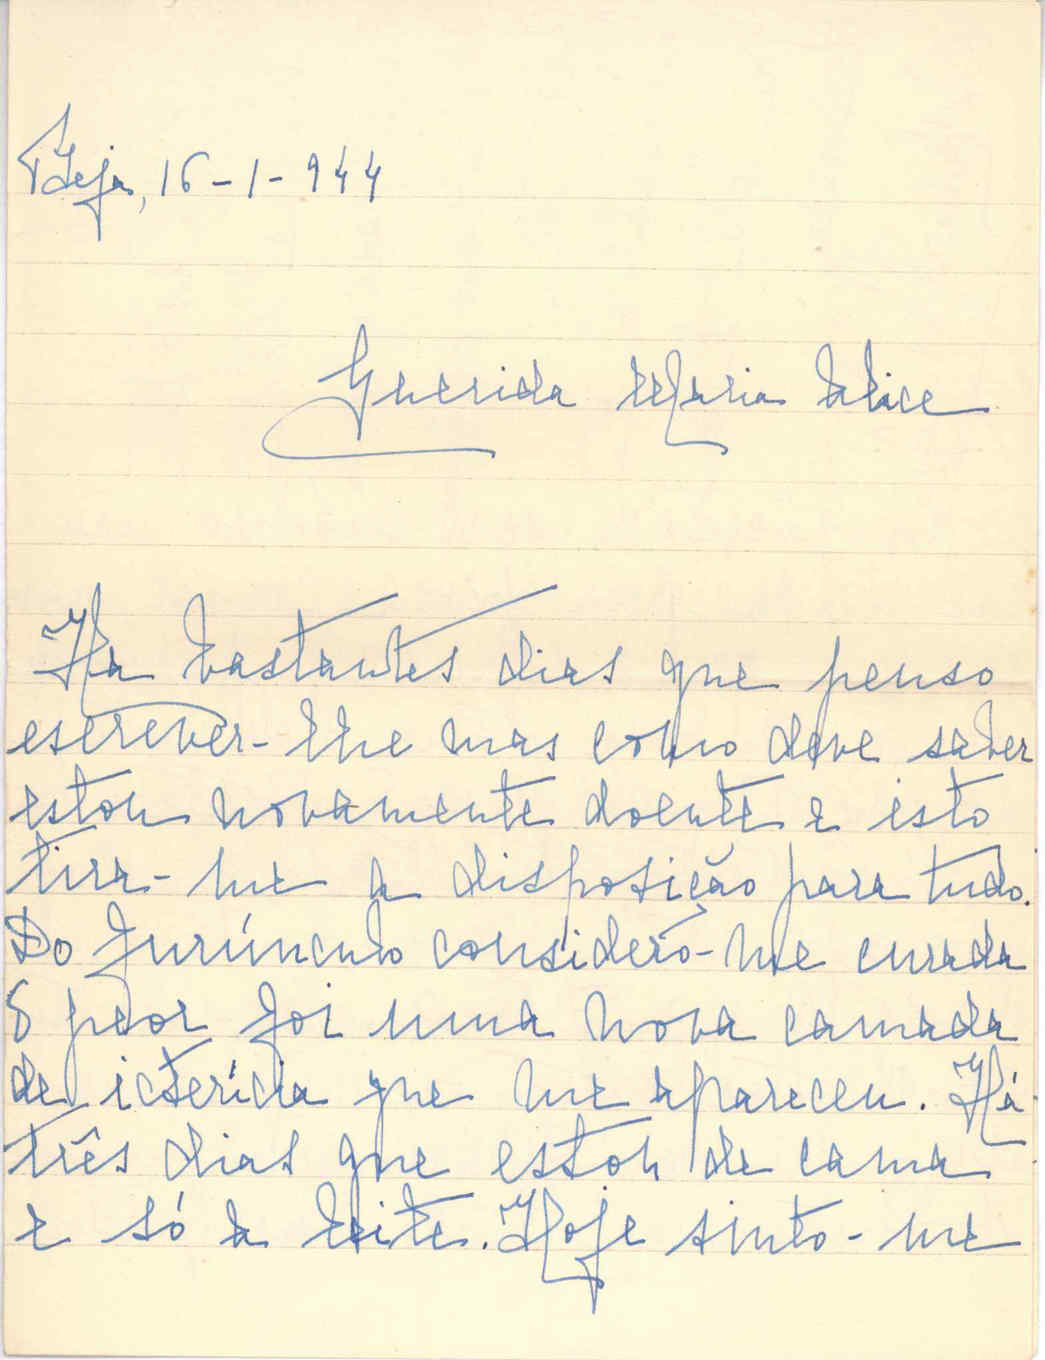 Beja, 16-1-944
Querida Maria Alice
Ha bastantes dias que penso
escrever-lhe mas como deve saber
estou novamente doente e isto
tira-me a disposição para tudo.
Do furúnculo considero-me curada
O peor foi uma nova camada
de icterícia que me apareceu. Há
três dias que estou de cama
e só a leite. Hoje sinto-me